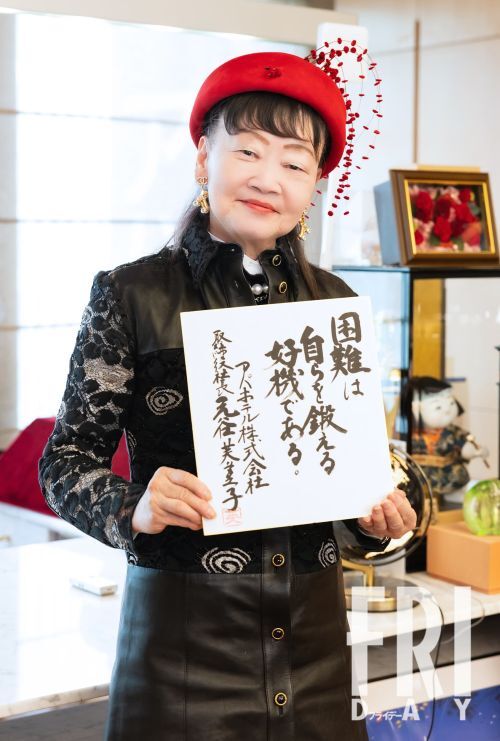 困難は
自らを鍛える
好機である。
アパホテル株式会社
取締役社長 元谷芙美子
FRI
DAY
フライデー